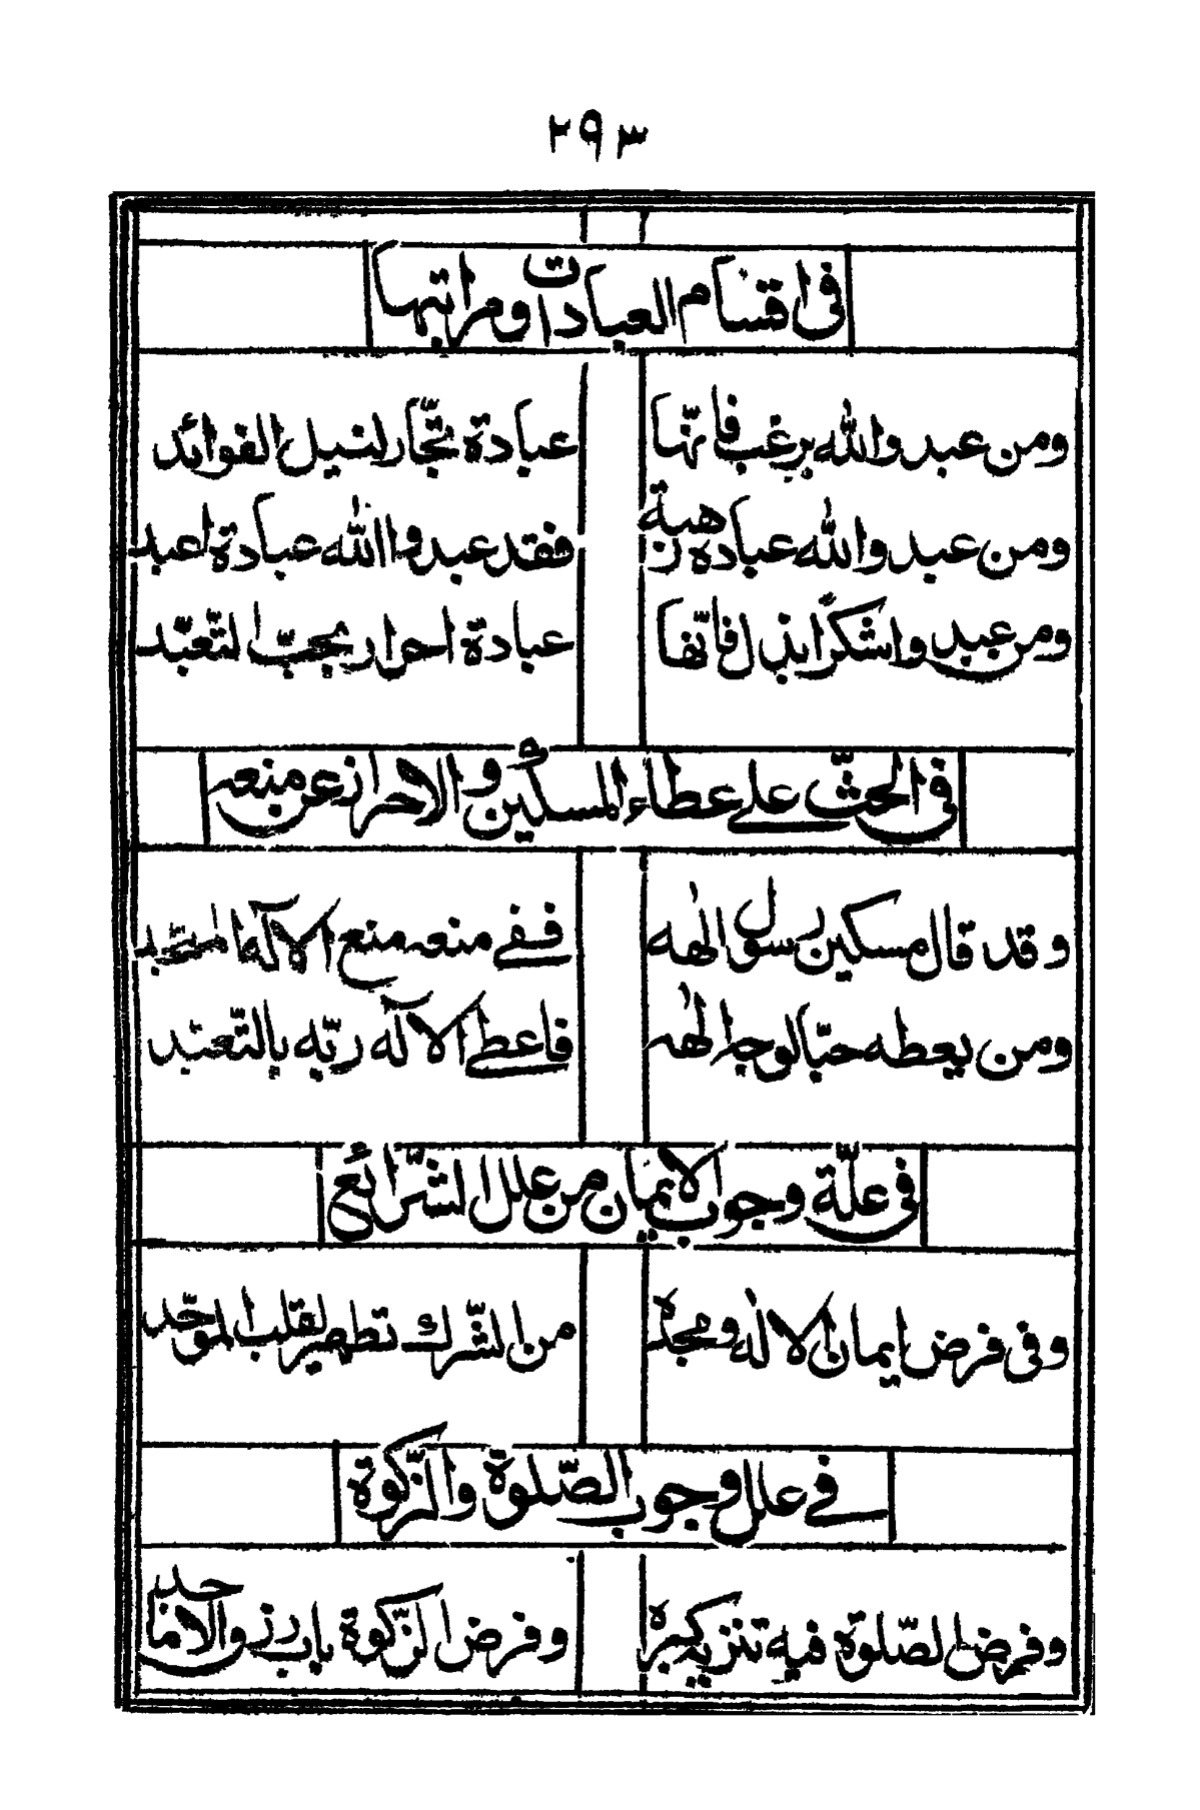 ٢٩٣
فى اقسام العبادات ومراتبها
ومن عبد والله برغب فانّها عبادة تجّار لنيل الفوائد
ومن عبد والله عبادة رهبة فقد عبد والله عبادة اعبد
ومن عبد واشكرًا بذل فانّها عبادة احرار بحبّ التّعبّد
فى الحثّ على عطاء المسكين والاحراز عن منعه
وقد قال مسكين رسول الٰهه ففى منعه منع الالٓه
ومن يعطه حبّا لوجه الٰهه فاعطى الالٓه ربّه بالتّعبّد
فى علّة وجوب الايمان من علل الشّرائع
وفى فرض ايمان الالٰه ومجده من الشّرك تطهير لقلب الموحّد
فى علل وجوب الصّلوة والزّكوة
وفرض الصّلوة فيه تنزيه كبره وفرض الزّكوة باب رزق الاماجد